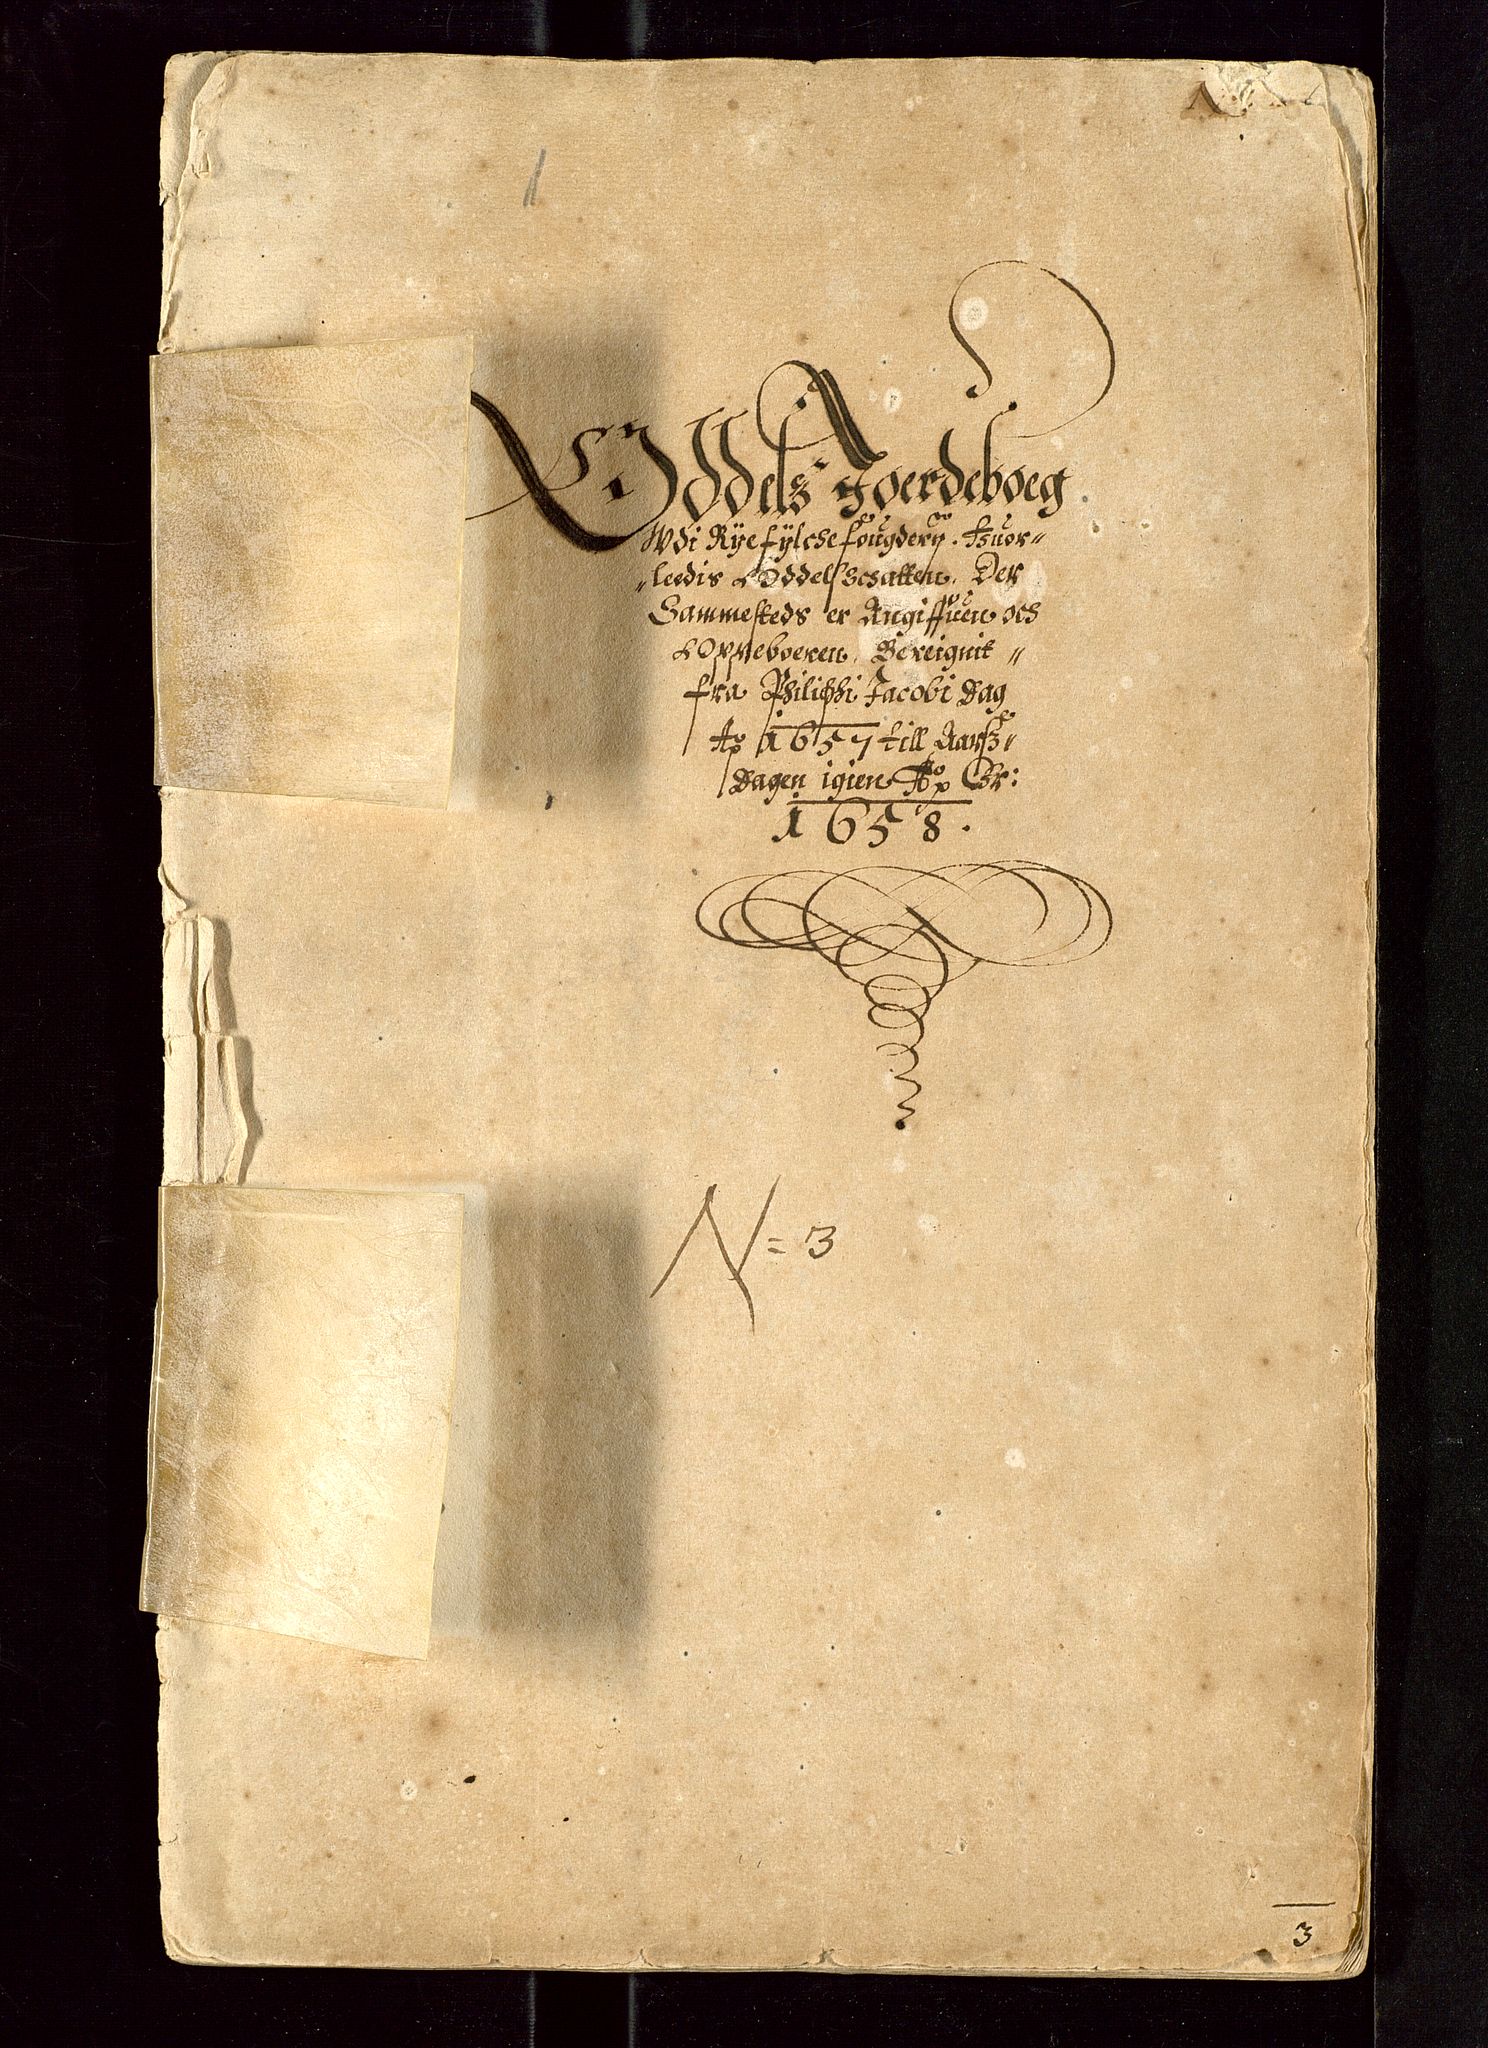 1
Oddels Joerdeboeg
Wdi Ryefylche fougdery. Huor=
=leedis Oddelsschatten. Der
Sammesteds er Angiffuen och
Oppeboeren. Bereignit =
fra Philippi Jacobi Dag
Ao 1657 till Aarsz=
Dagen igien Ao Chr:
1658.
N=3
3